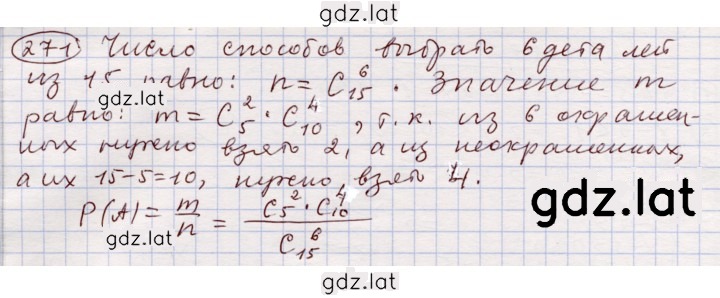 gdz.lat
271 Число способов выбрать 6 деталей
из 15 равно: n = C₁₅⁶. Значение m
gdz.lat
равно: m = C₅² · C₁₀⁴, т.к. из 6 окрашен-
ных нужно взять 2, а из неокрашенных,
а их 15-5=10, нужно взять 4.
gdz.lat
P(A) = m/n = C₅² · C₁₀⁴ / C₁₅⁶
gdz.lat
gdz.lat
gdz.lat
gdz.lat